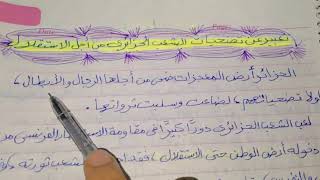 تعبير عن تضحيات الشعب الجزائري من أجل الاستقلال
الجزائر أرض المعجزات ضحى من أجلها الرجال والأبطال،
لولا تضحياتهم، لضاعت وسلبت ثرواتها.
لعب الشعب الجزائري دورا كبيرا في مقاومة الاستعمار الفرنسي
دخوله أرض الوطن حتى الاستقلال، فقد الشعب ثورته